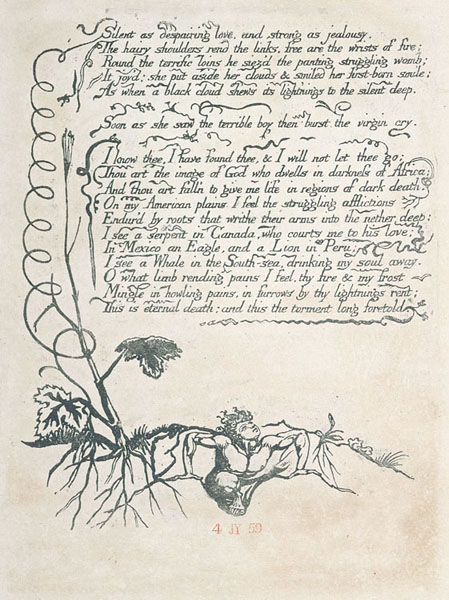 Silent as despairing love, and strong as jealousy,
The hairy shoulders rend the links, free are the wrists of fire;
Round the terrific loins he siez'd the panting struggling womb;
It joy'd: she put aside her clouds & smiled her first-born smile;
As when a black cloud shews its lightnings to the silent deep.
Soon as she saw the terrible boy then burst the virgin cry.
I know thee, I have found thee, & I will not let thee go;
Thou art the image of God who dwells in darkness of Africa;
And thou art fall'n to give me life in regions of dark death.
On my American plains I feel the struggling afflictions
Endur'd by roots that writhe their arms into the nether deep:
I see a serpent in Canada, who courts me to his love;
In Mexico an Eagle, and a Lion in Peru;
I see a Whale in the South-sea, drinking my soul away.
O what limb rending pains I feel, thy fire & my frost
Mingle in howling pains, in furrows by thy lightnings rent;
This is eternal death; and this the torment long foretold.
4 JY 59